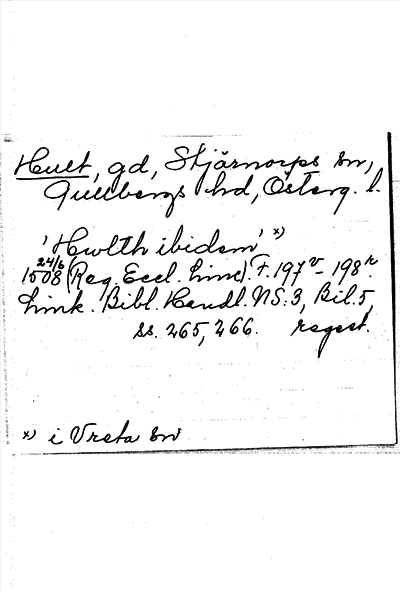 Hult, gd, Stjärnorps sn,
Gullbergs hd, Österg. l.
'Hwlth ibidem' x)
24/6
1508 (Reg. Eccl. Linc). F. 197v - 198r.
Link. Bibl. Handl. NS. 3, Bil. 5,
ss. 265, 266. regest.
x) i Vreta sn